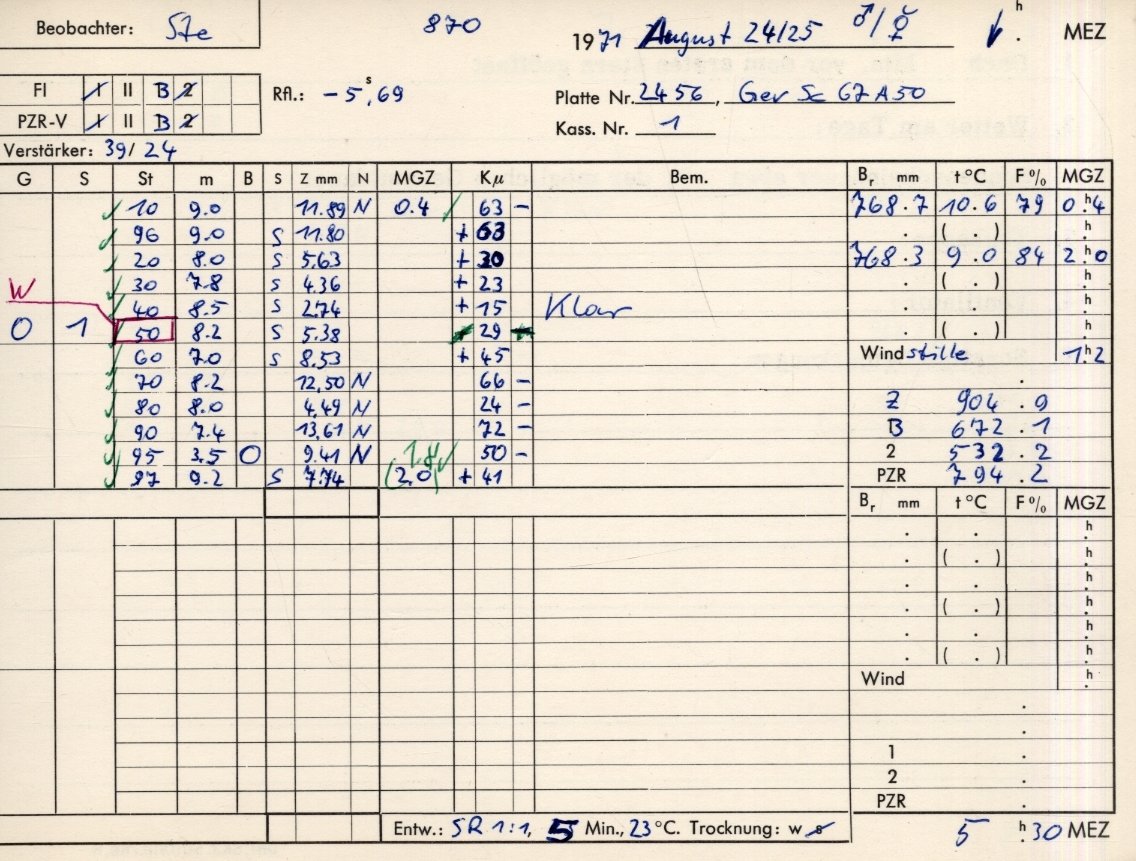 Beobachter: Ste 870 1971 August 24/25 ♂/♀ h . MEZ
FI I II B 2 Rfl.: - 5s,69 Platte Nr. 2456, Gev Sc 67 A 50
PZR-V I II B 2 Kass. Nr. 1
Verstärker: 39/24
G S St m B S Z mm N MGZ Kµ Bem. Br mm t °C F % MGZ
10 9.0 11.89 N 0.4 63 - 768.7 10.6 79 0h.4
96 9.0 S 11.80 + 63 . ( . ) h.
20 8.0 S 5.63 + 30 768.3 9.0 84 2h.0
W 30 7.8 S 4.36 + 23 . ( . ) h.
40 8.5 S 2.74 + 15 Klar . . h.
0 1 50 8.2 S 5.38 29 + . ( . ) h.
60 7.0 S 8.53 + 45 Windstille 1h.2
70 8.2 12,50 N 66 - .
80 8.0 4,49 N 24 - Z 904.9
90 7.4 13,61 N 72 - B 672.1
95 3.5 O 9.41 N 1.8 50 - 2 532.2
97 9.2 S 7.74 (2.0) + 41 PZR 794.2
Br mm t °C F % MGZ
. . h.
. ( . ) h.
. . h.
. ( . ) h.
. . h.
. ( . ) h.
Wind h.
.
.
1 .
2 .
PZR .
Entw.: SR 1:1, 5 Min., 23 °C. Trocknung: w s 5 h.30 MEZ